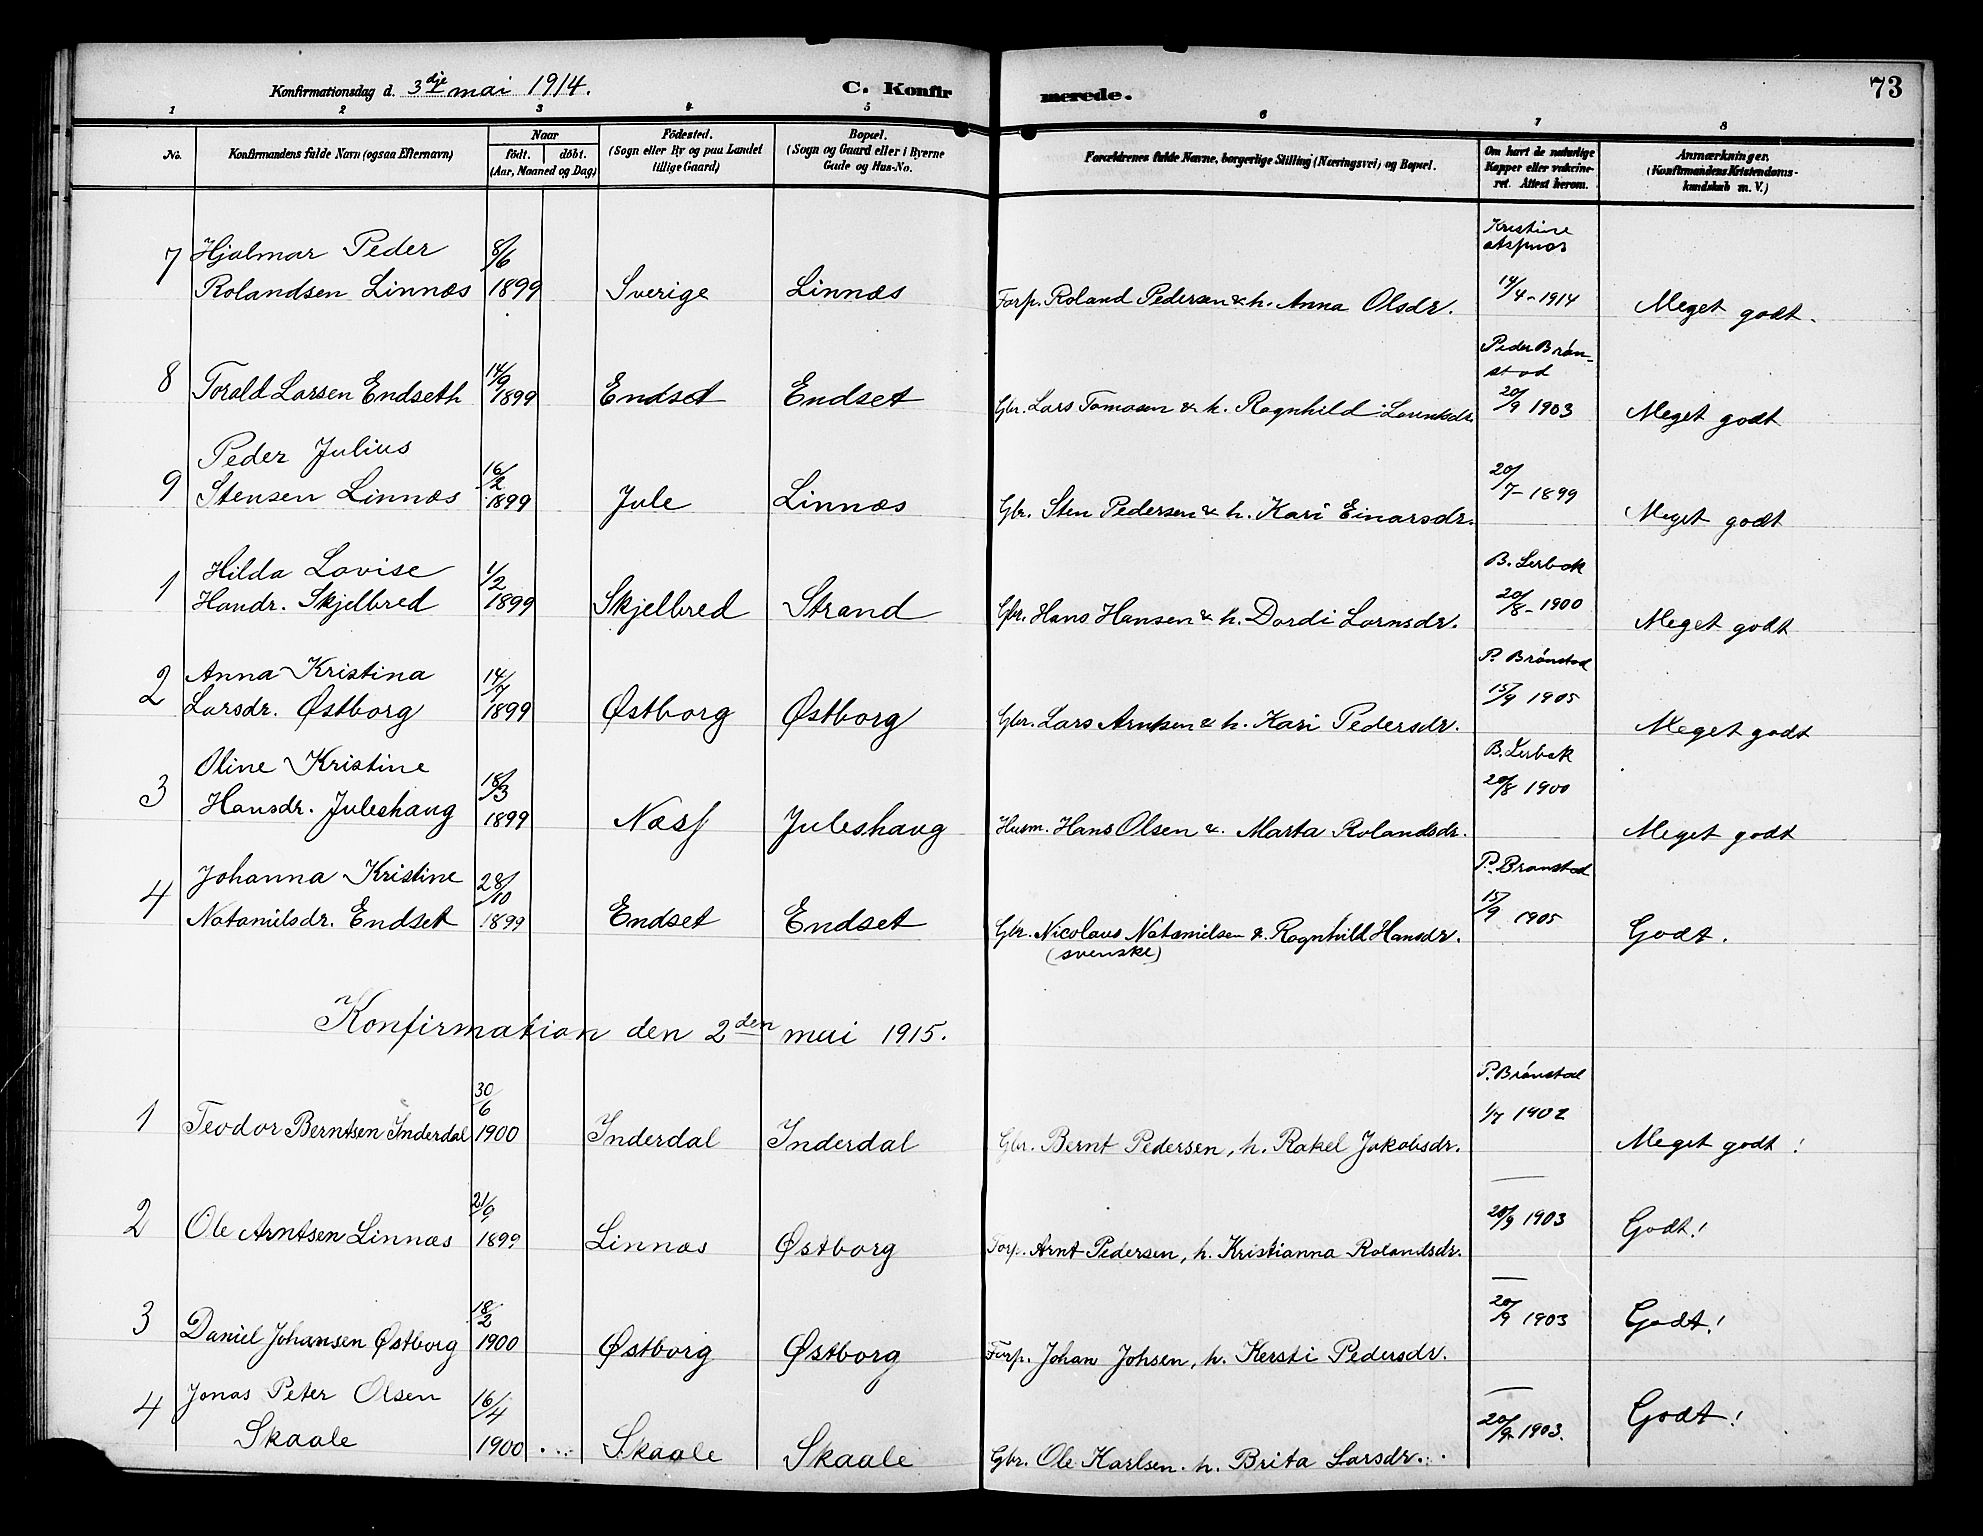 Konfirmationsdag d. 3dje mai 1914.
C. Konfirmerede.
73
1 2 3 4 5 6 7 8
No.
Konfirmandens fulde Navn (ogsaa Efternavn)
Naar
født. døbt.
(Aar, Maaned og Dag)
Fødested.
(Sogn eller By og paa Landet
tillige Gaard)
Bopæl.
(Sogn og Gaard eller i Byerne
Gade og Hus-No.
Forældrenes fulde Navne, borgerlige Stilling (Næringsvei) og Bopæl.
Om havt de naturlige
Kopper eller vakcine-
ret. Attest herom.
Anmærkninger.
(Konfirmandens Kristendoms-
kundskab m. V.)
7 Hjalmar Peder
Rolandsen Linnæs
8/6
1899
Sverige
Linnæs
Forp. Roland Pedersen & h. Anna Olsdr.
Kristine
14/4-1914
Meget godt.
8 Torald Larsen Endseth
14/9
1899
Endset
Endset
Gbr. Lars Tomasen & h. Ragnhild Lorentsdr.
Peder Brøn-
stad
20/9 1903
Meget godt
9 Peder Julius
Stensen Linnæs
16/2
1899
Jule
Linnæs
Gbr. Sten Pedersen & h. Kari Einarsdr.
20/7-1899
Meget godt
1 Hilda Lovise
Handr. Skjelbred
1/2
1899
Skjelbred
Strand
Gbr. Hans Hansen & h. Dordi Larnsdr.
B. Lerbak
20/8-1900
Meget godt
2 Anna Kristina
Larsdr. Østborg
14/7
1899
Østborg
Østborg
Gbr. Lars Arntsen & h. Kari Pedersdr.
P. Brønstad
15/9 1905
Meget godt
3 Oline Kristine
Hansdr. Juleshaug
18/3
1899
Næss
Juleshaug
Husm. Hans Olsen & Marta Rolandsdr.
B. Lerbak
20/8 1900
Meget godt
4 Johanna Kristine
Natanielsdr. Endset
28/10
1899
Endset
Endset
Gbr. Nicolaus Natanielsen & Ragnhild Hansdr.
(svenske)
P. Brønstad
15/9 1905
Godt.
Konfirmation den 2den mai 1915.
1 Teodor Berntsen Inderdal
30/6
1900
Inderdal
Inderdal
Gbr. Bernt Pedersen, h. Rakel Jakobsdr.
P. Brønstad
1/7 1902
Meget godt!
2 Ole Arntsen Linnæs
21/9
1899
Linnæs
Østborg
Forp. Arnt Pedersen, h. Kristianna Rolandsdr.
—
20/9 1903
Godt!
3 Daniel Johansen Østborg
18/2
1900
Østborg
Østborg
Forp. Johan Johsen, h. Kersti Pedersdr.
—
20/9 1903
Godt!
4 Jonas Peter Olsen
Skaale
16/4
1900
Skaale
Skaale
Gbr. Ole Karlsen. h. Brita Larsdr.
—
20/9-1903.
Godt!